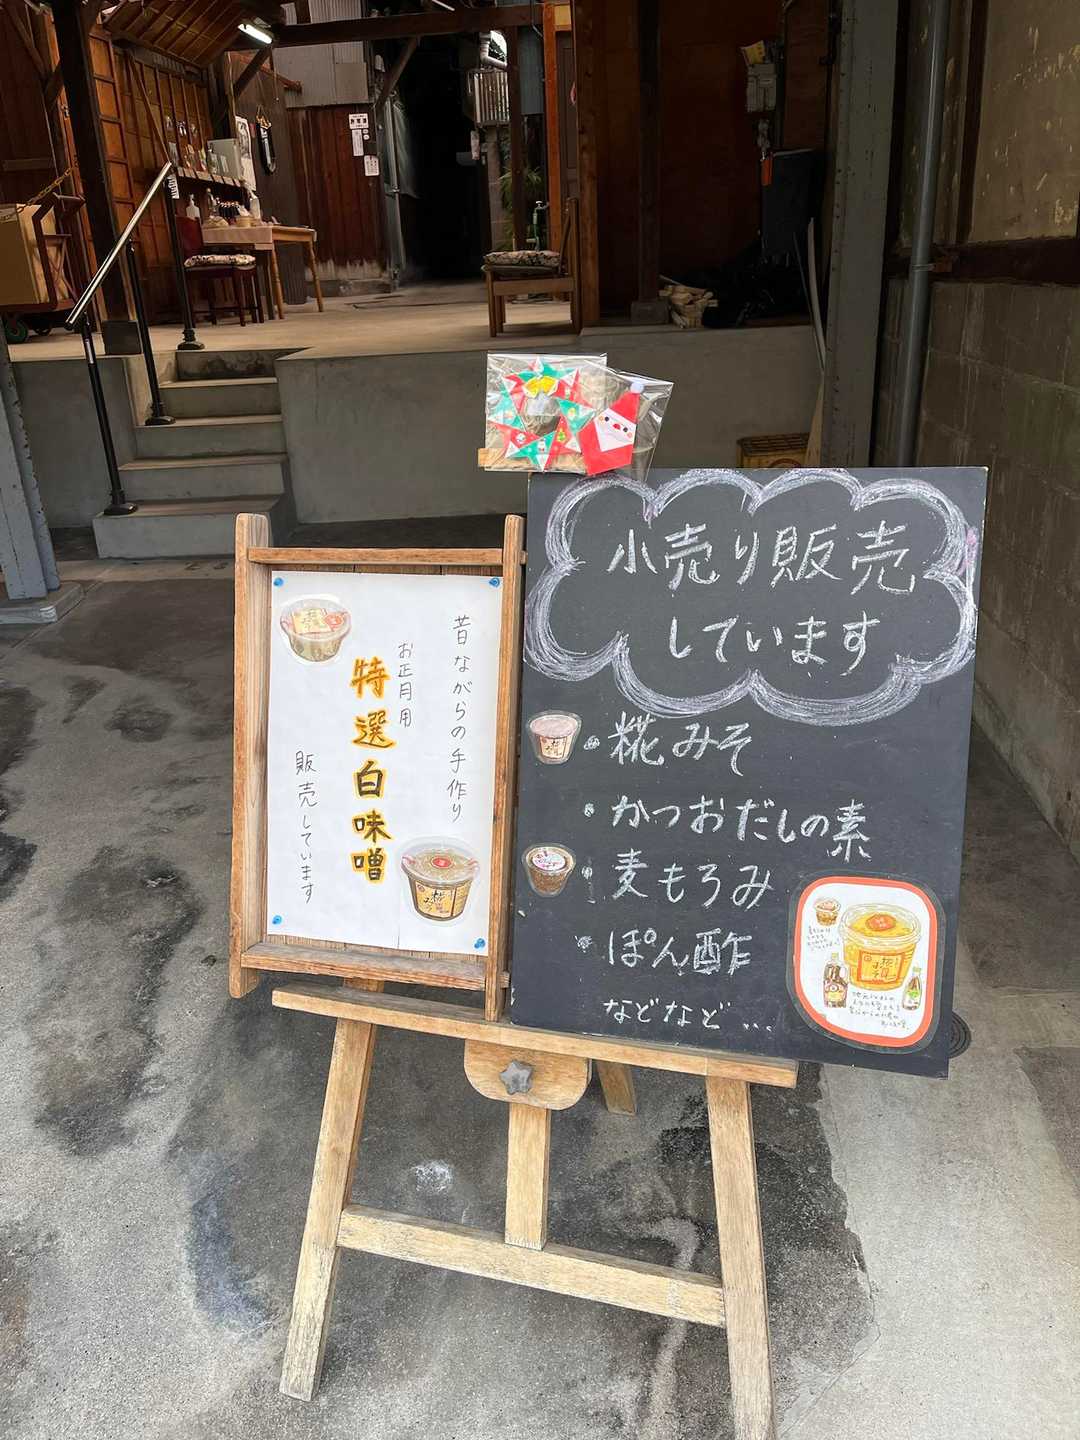 昔ながらの手作り
お正月用
特選白味噌
販売しています
小売り販売
しています
・糀みそ
・かつおだしの素
・麦もろみ
・ぽん酢
などなど…